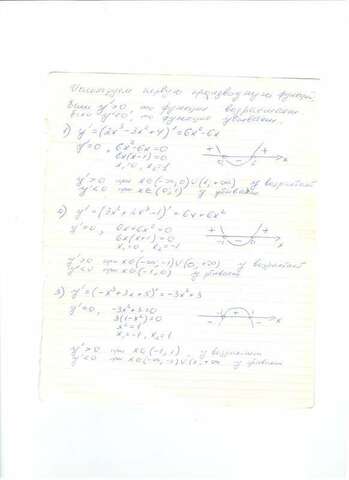 Используем первую производную функций.
Если y'>0, то функция возрастает.
Если y'<0, то функция убывает.
1) y'=(2x³-3x²+4)'=6x²-6x
y'=0, 6x²-6x=0
6x(x-1)=0
x₁=0, x₂=1
+ - + x
y'>0 при x∈(-∞,0)∪(1,+∞) y возрастает
y'<0 при x∈(0,1) y убывает
2) y'=(3x²+2x³-1)'=6x+6x²
y'=0, 6x+6x²=0
6x(x+1)=0
x₁=0, x₂=-1
+ - + x
y'>0 при x∈(-∞,-1)∪(0,+∞) y возрастает
y'<0 при x∈(-1,0) y убывает
3) y'=(-x³+3x+5)'=-3x²+3
y'=0, -3x²+3=0
3(1-x²)=0
x²=1
x₁=-1, x₂=1
- + - x
y'>0 при x∈(-1,1) y возрастает
y'<0 при x∈(-∞,-1)∪(1,+∞ y убывает